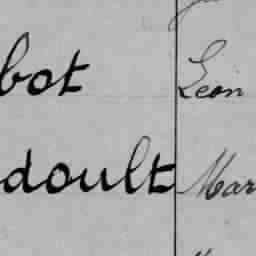 bot Léon
doult Mar